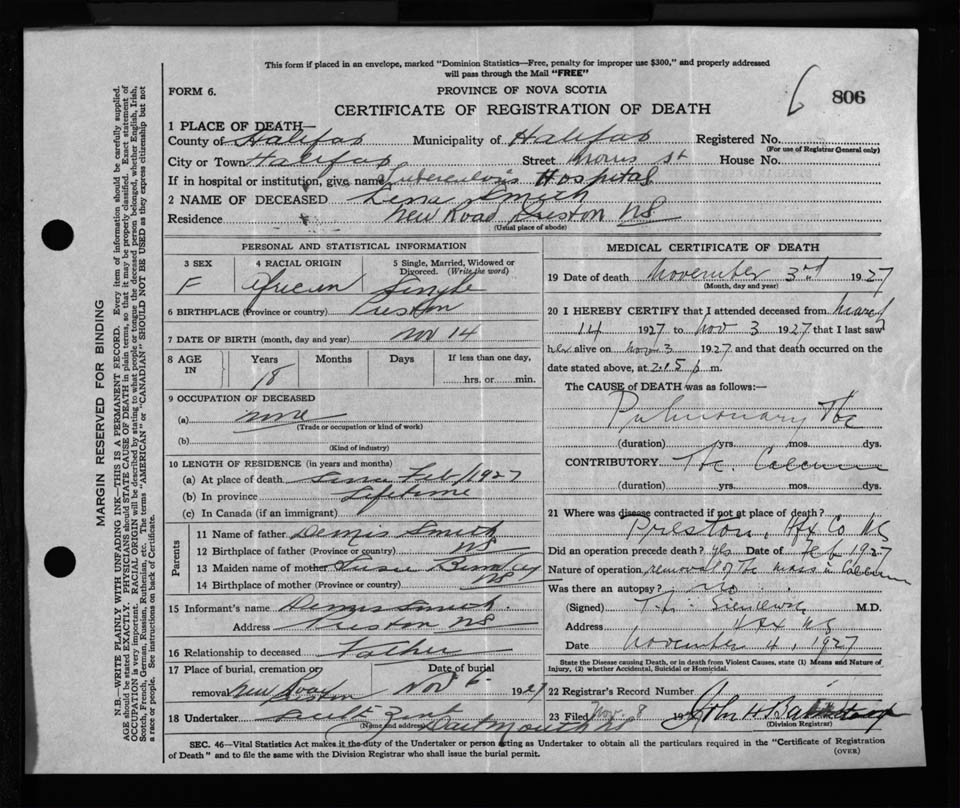 This form if placed in an envelope, marked "Dominion Statistics—Free, penalty for improper use $300," and properly addressed
will pass through the Mail "FREE"
FORM 6.
PROVINCE OF NOVA SCOTIA
6 806
CERTIFICATE OF REGISTRATION OF DEATH
1 PLACE OF DEATH—
County of Halifax Municipality of Halifax Registered No.
(For use of Registrar General only)
City or Town Halifax Street Morris St House No.
If in hospital or institution, give name Tuberculosis Hospital
2 NAME OF DECEASED Smith
Residence New Road Preston NS
(Usual place of abode)
PERSONAL AND STATISTICAL INFORMATION
3 SEX 4 RACIAL ORIGIN 5 Single, Married, Widowed or Divorced. (Write the word)
F African Single
6 BIRTHPLACE (Province or country) Preston
7 DATE OF BIRTH (month, day and year) Nov 14
8 AGE IN Years Months Days If less than one day,
18 hrs. or min.
9 OCCUPATION OF DECEASED
(a) none
(Trade or occupation or kind of work)
(b)
(Kind of industry)
10 LENGTH OF RESIDENCE (in years and months)
(a) At place of death Since Feb/1927
(b) In province Lifetime
(c) In Canada (if an immigrant)
Parents
11 Name of father Dennis Smith
12 Birthplace of father (Province or country) NS
13 Maiden name of mother Susie
14 Birthplace of mother (Province or country) NS
15 Informant's name Dennis Smith
Address Preston NS
16 Relationship to deceased Father
17 Place of burial, cremation or Date of burial
removal New Road Preston Nov 6 1927
18 Undertaker
(Name and address) Dartmouth NS
MEDICAL CERTIFICATE OF DEATH
19 Date of death November 3rd 1927
(Month, day and year)
20 I HEREBY CERTIFY that I attended deceased from March
14 1927 to Nov 3 1927 that I last saw
her alive on Nov 3 1927 and that death occurred on the
date stated above, at 2.15 p m.
The CAUSE of DEATH was as follows:—
Pulmonary Tbc
(duration) yrs. mos. dys.
CONTRIBUTORY Tbc.
(duration) yrs. mos. dys.
21 Where was disease contracted if not at place of death?
Preston, Hfx Co NS
Did an operation precede death? Yes Date of Feb 1927
Nature of operation removal of The mass in
Was there an autopsy? no
(Signed) M.D.
Address Hfx NS
Date November 4, 1927
State the Disease causing Death, or in death from Violent Causes, state (1) Means and Nature of
Injury, (2) whether Accidental, Suicidal or Homicidal.
22 Registrar's Record Number
23 Filed Nov. 8 19 John H
(Division Registrar)
SEC. 46—Vital Statistics Act makes it the duty of the Undertaker or person acting as Undertaker to obtain all the particulars required in the "Certificate of Registration
of Death" and to file the same with the Division Registrar who shall issue the burial permit.
(OVER)
MARGIN RESERVED FOR BINDING
N.B.—WRITE PLAINLY WITH UNFADING INK—THIS IS A PERMANENT RECORD. Every item of information should be carefully supplied.
AGE should be stated EXACTLY. PHYSICIANS should STATE CAUSE OF DEATH in plain terms, so that it may be properly classified. Exact statement of
OCCUPATION is very important. RACIAL ORIGIN will be described by stating to what people or tongue the deceased person belonged, whether English, Irish,
Scotch, French, German, Russian, Ruthenian, etc. The terms "AMERICAN" or "CANADIAN" SHOULD NOT BE USED as they express citizenship but not
a race or people. See instructions on back of Certificate.